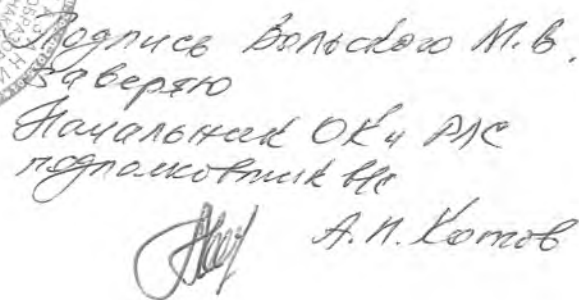 Подпись Вольского М.В.
заверяю
Начальник ОК и РЛС
подполковник в/с
А.П. Котов